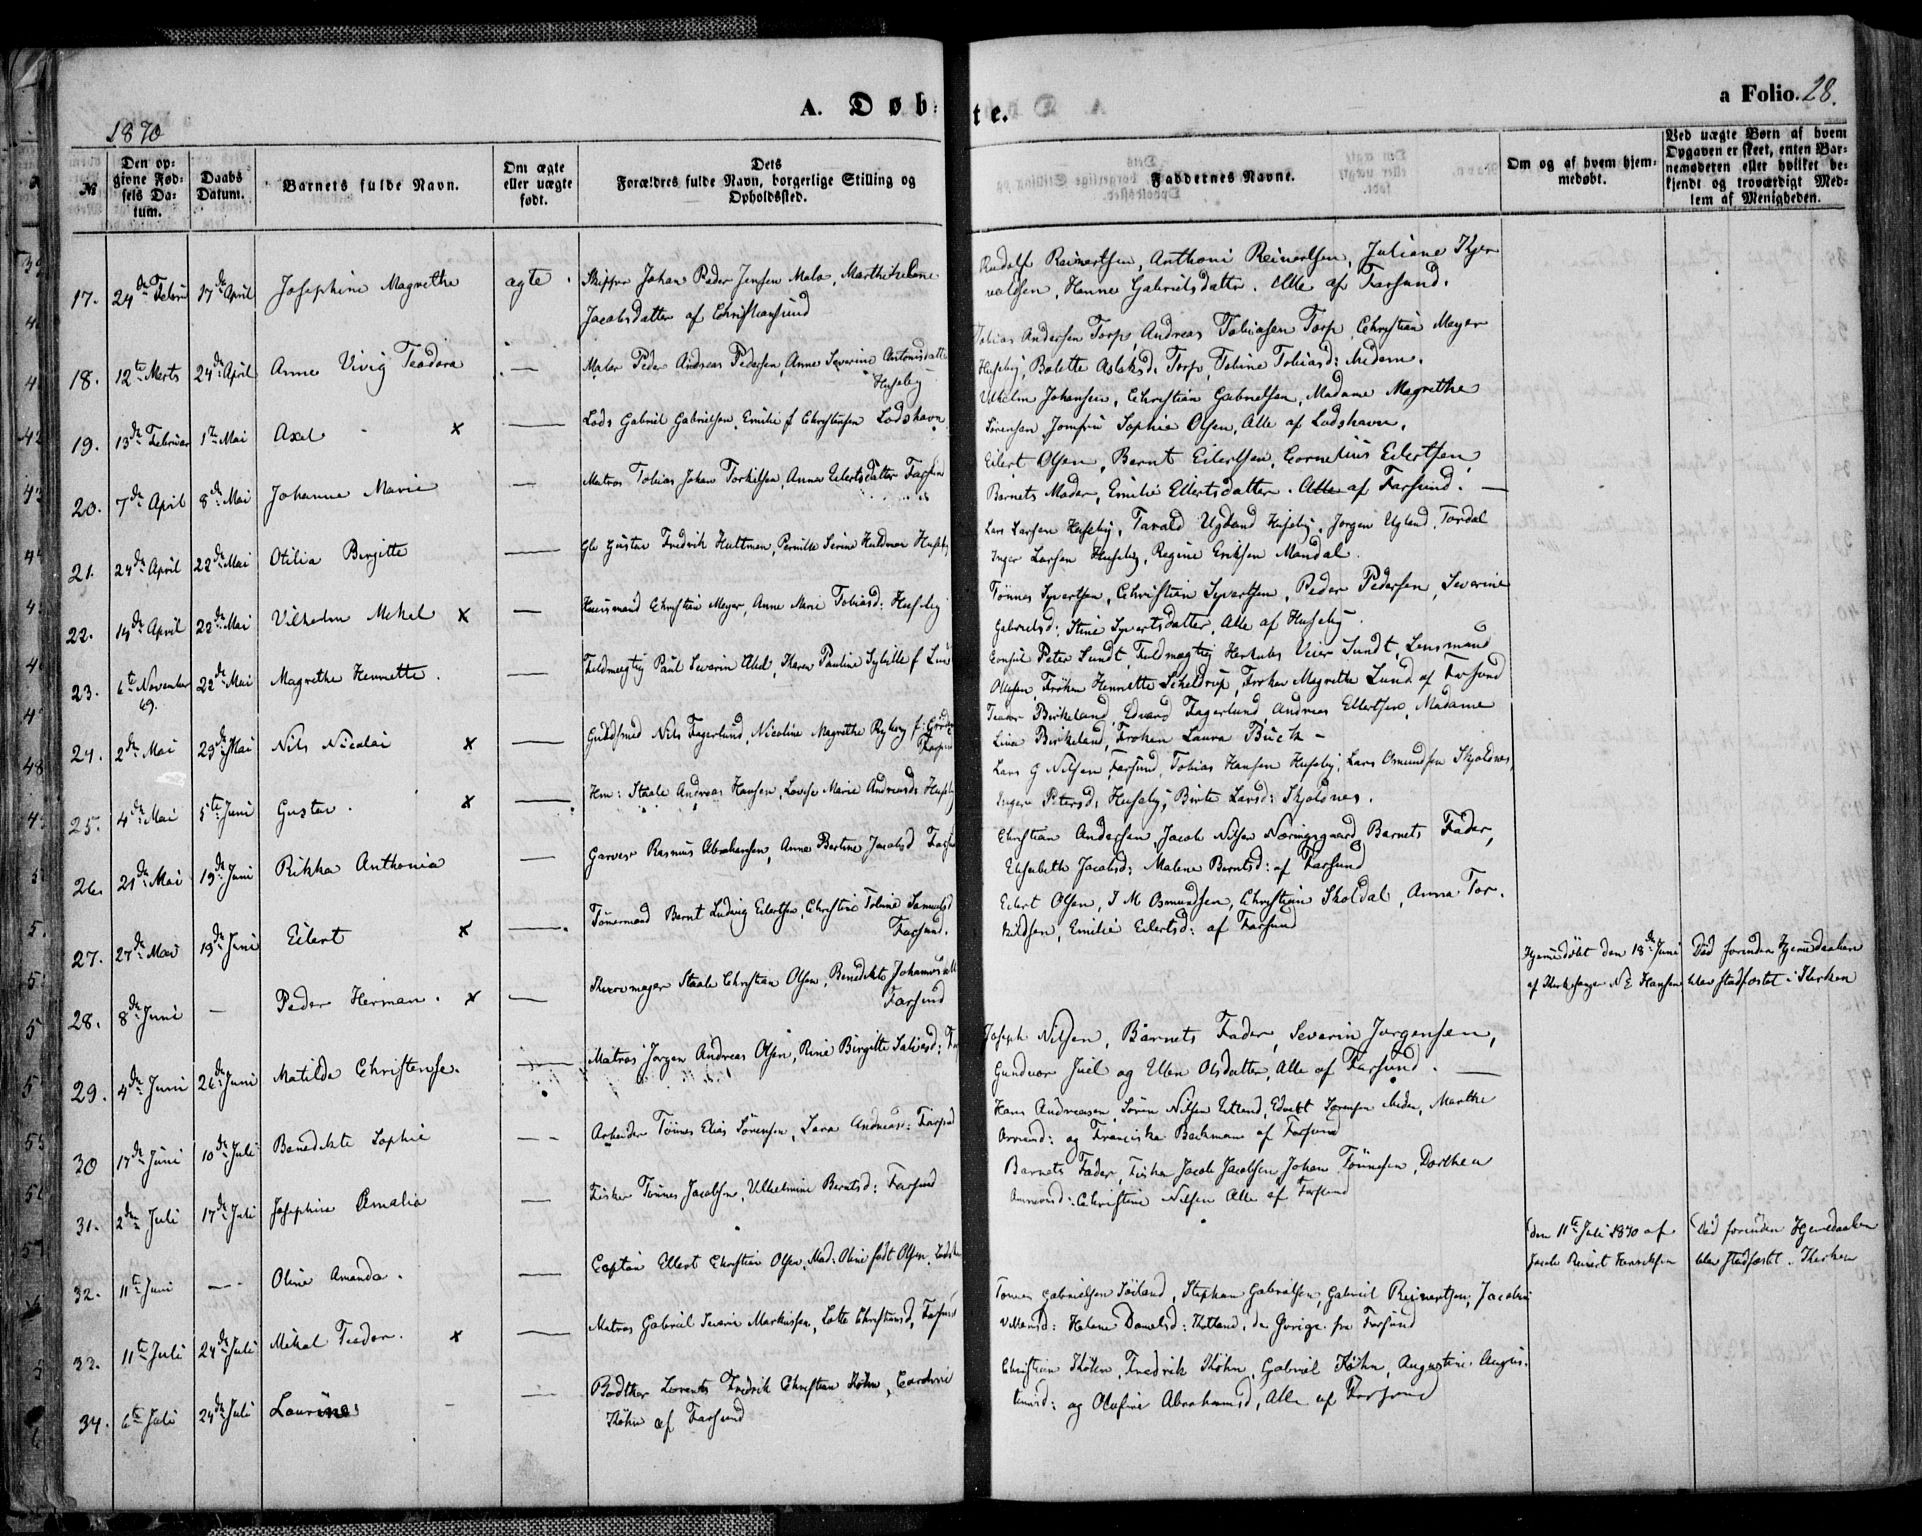 A. Døb=
te.
a Folio. 28.
1870
№
Den op=
givne Fød=
sels Da=
tum.
Daabs
Datum.
Barnets fulde Navn.
Om ægte
eller uægte
født.
Dets
Forældres fulde Navn, borgerlige Stilling og
Opholdssted.
Faddernes Navne.
Om og af hvem hjem=
medøbt.
Ved uægte Børn af hvem
Opgaven er skeet, enten Bar=
nemoderen eller hvilket be=
kjendt og troværdigt Med=
lem af Menigheden.
17. 24de Febru 17de April Josephine Magrethe ægte Skipper Johan Peder Jensen Malo, Marthe Helene
Jacobsdatter af Christiansund
Rudolf Reinertsen, Anthoni Reinertsen, Juliane Thor
valdsen, Hanne Gabrielsdatter. Alle af Farsund.
18. 12te Merts 24de April Anne Vivig Teodora — Maler Peder Andreas Pedersen, Anne Severine Antonisdatter
Huseby
Tobias Andersen Torp, Andreas Tobiasen Torp, Christian Meyer
Huseby, Bolette Aslaksd. Torp, Tobine Tobiasd:
19. 13de Februar 1te Mai Axel x — Lods Gabriel Gabrielsen, Emilie f Christensen Lodshavn
Vilhelm Johansen, Christian Gabrielsen, Madame Magrethe
Sørensen Jomfru Sophie Olsen, Alle af Lodshavn.
20. 7de April 8de Mai Johanna Marie — Matros Tobias Johan Torkilsen, Anna Eilertsdatter Farsun
Eilert Olsen, Bernt Eilertsen, Cornelius Eilertsen
Barnets Moder, Emilie Ellertsdatter. Alle af Farsund. —
21. 24de April 22de Mai Otilia Birgitte — Gustav Fredrik Hultman, Pernille Serine Huseby
Lars Larsen Huseby, Tarald Ugland Huseby, Jørgen Ugland,
Inger Larsen Huseby, Regine Eriksen Mandal.
22. 14de April 22de Mai Vilhelm Mekel x — Huusmand Christian Meyer, Anne Marie Tobiasd: Huseby
Tønnes Syvertsen, Christian Syvertsen, Peder Pedersen, Severine
Gabrielsd: Stine Syvertsdatter, Alle af Huseby
23. 6te November 69. 22de Mai Magrethe Henriette. — Fuldmægtig Paul Severin, Karen Pauline Sybille f Lund
Consul Peter Sundt, Fuldmægtig Herkules Veier Sundt, Lensmand
Olsen, Frøken Henriette Scheldrup, Frøken Magrethe Lund af Farsund
24. 2de Mai 29de Mai Nils Nicolai x — Guldsmed Nils Fagerlund, Nicoline Magrethe Ryberg f:
Farsund
Teodor Birkeland, Edvard Fagerlund, Andreas Ellertsen, Madame
Lina Birkeland, Frøken Laura Buch –
25. 4de Mai 5te Juni Gustav. x — Hm: Staale Andreas Hansen, Lovise Marie Andreasd: Huseby
Lars G Nilsen, Farsund, Tobias Hansen Huseby, Lars Osmundsen Skjoldnes,
Ingeri Petersd: Huseby, Birte Larsd: Skjoldnes.
26. 21de Mai 19de Juni Rikka Anthonia — Garver Rasmus Abrahamsen, Anne Bertine Jacobsd Farsund
Christian Andersen, Jacob Nilsen Næringsgaard, Barnets Fader,
Elisabeth Jacobsd: Malene Berntsd: af Farsund
27. 27de Mai 19de Juni Eilert x — Tømermand Bernt Ludvig Eilertsen, Christine Tobine Samuelsd
Farsund.
Eilert Olsen, I M Osmundsen, Christian Skoldal, Anna Tor.
kildsen, Emilie Eilertsd: af Farsund
28. 8de Juni – Peder Herman. x — Skomager Staale Christian Olsen, Benedikte
Farsund
Hjemmedøbt den 18de Juni
af Kirkesanger N E Hansen
Død forinden Hjemedaaben
blev stadfæstet i Kirken
29. 4de Juni 26de Juni Matilde Christense. — Matros Jørgen Andreas Olsen, Rine Birgitte
Joseph Nilsen, Barnets Fader, Severin Jørgensen,
Gundvor Juel og Ellen Olsdatter, Alle af Farsund. —
30 17de Juni 10de Juli Benedikte Sophie — Arbeider Tønnes Elias Sørensen, Sara Andreas: Farsund
Hans Andreasen, Søren Nilsen, Edvart Sørensen, Marthe
og Franciska Beckman af Farsund
31. 2den Juli 17de Juli Josephine Amalia — Fisker Tønnes Jacobsen, Vilhelmine Berntsd: Farsund
Barnets Fader, Fisker Jacob Jacobsen, Johan Tønnesen, Dorthea
Christine Nilsen Alle af Farsund
32. 11te Juni — Oline Amanda. — Captain Ellert Christian Olsen, Mad: Oline født Olsen,
den 11te Juli 1870 af
Jacob Reinert Henriksen
Død forinden Hjemedaaben
blev stadfæstet i Kirken
33. 11te Juli 24de Juli Mikal Teodor. x — Matros Gabriel Severin Markussen, Lotte Christensd, Farsund
Tønnes Gabrielsen, Stephan Gabrielsen, Gabriel Reinertsen, Jacobine
Villumsd: Helene Danielsd:, de Øvrige fra Farsund
34. 6te Juli 24de Juli Laurine — Bødker Lorents Fredrik Christian Køhn,
Køhn af Farsund
Christian Køhn, Fredrik Køhn, Gabriel Køhn, Augustine Augus.
tinusd: og Olefine Abrahamsd, Alle af Farsund